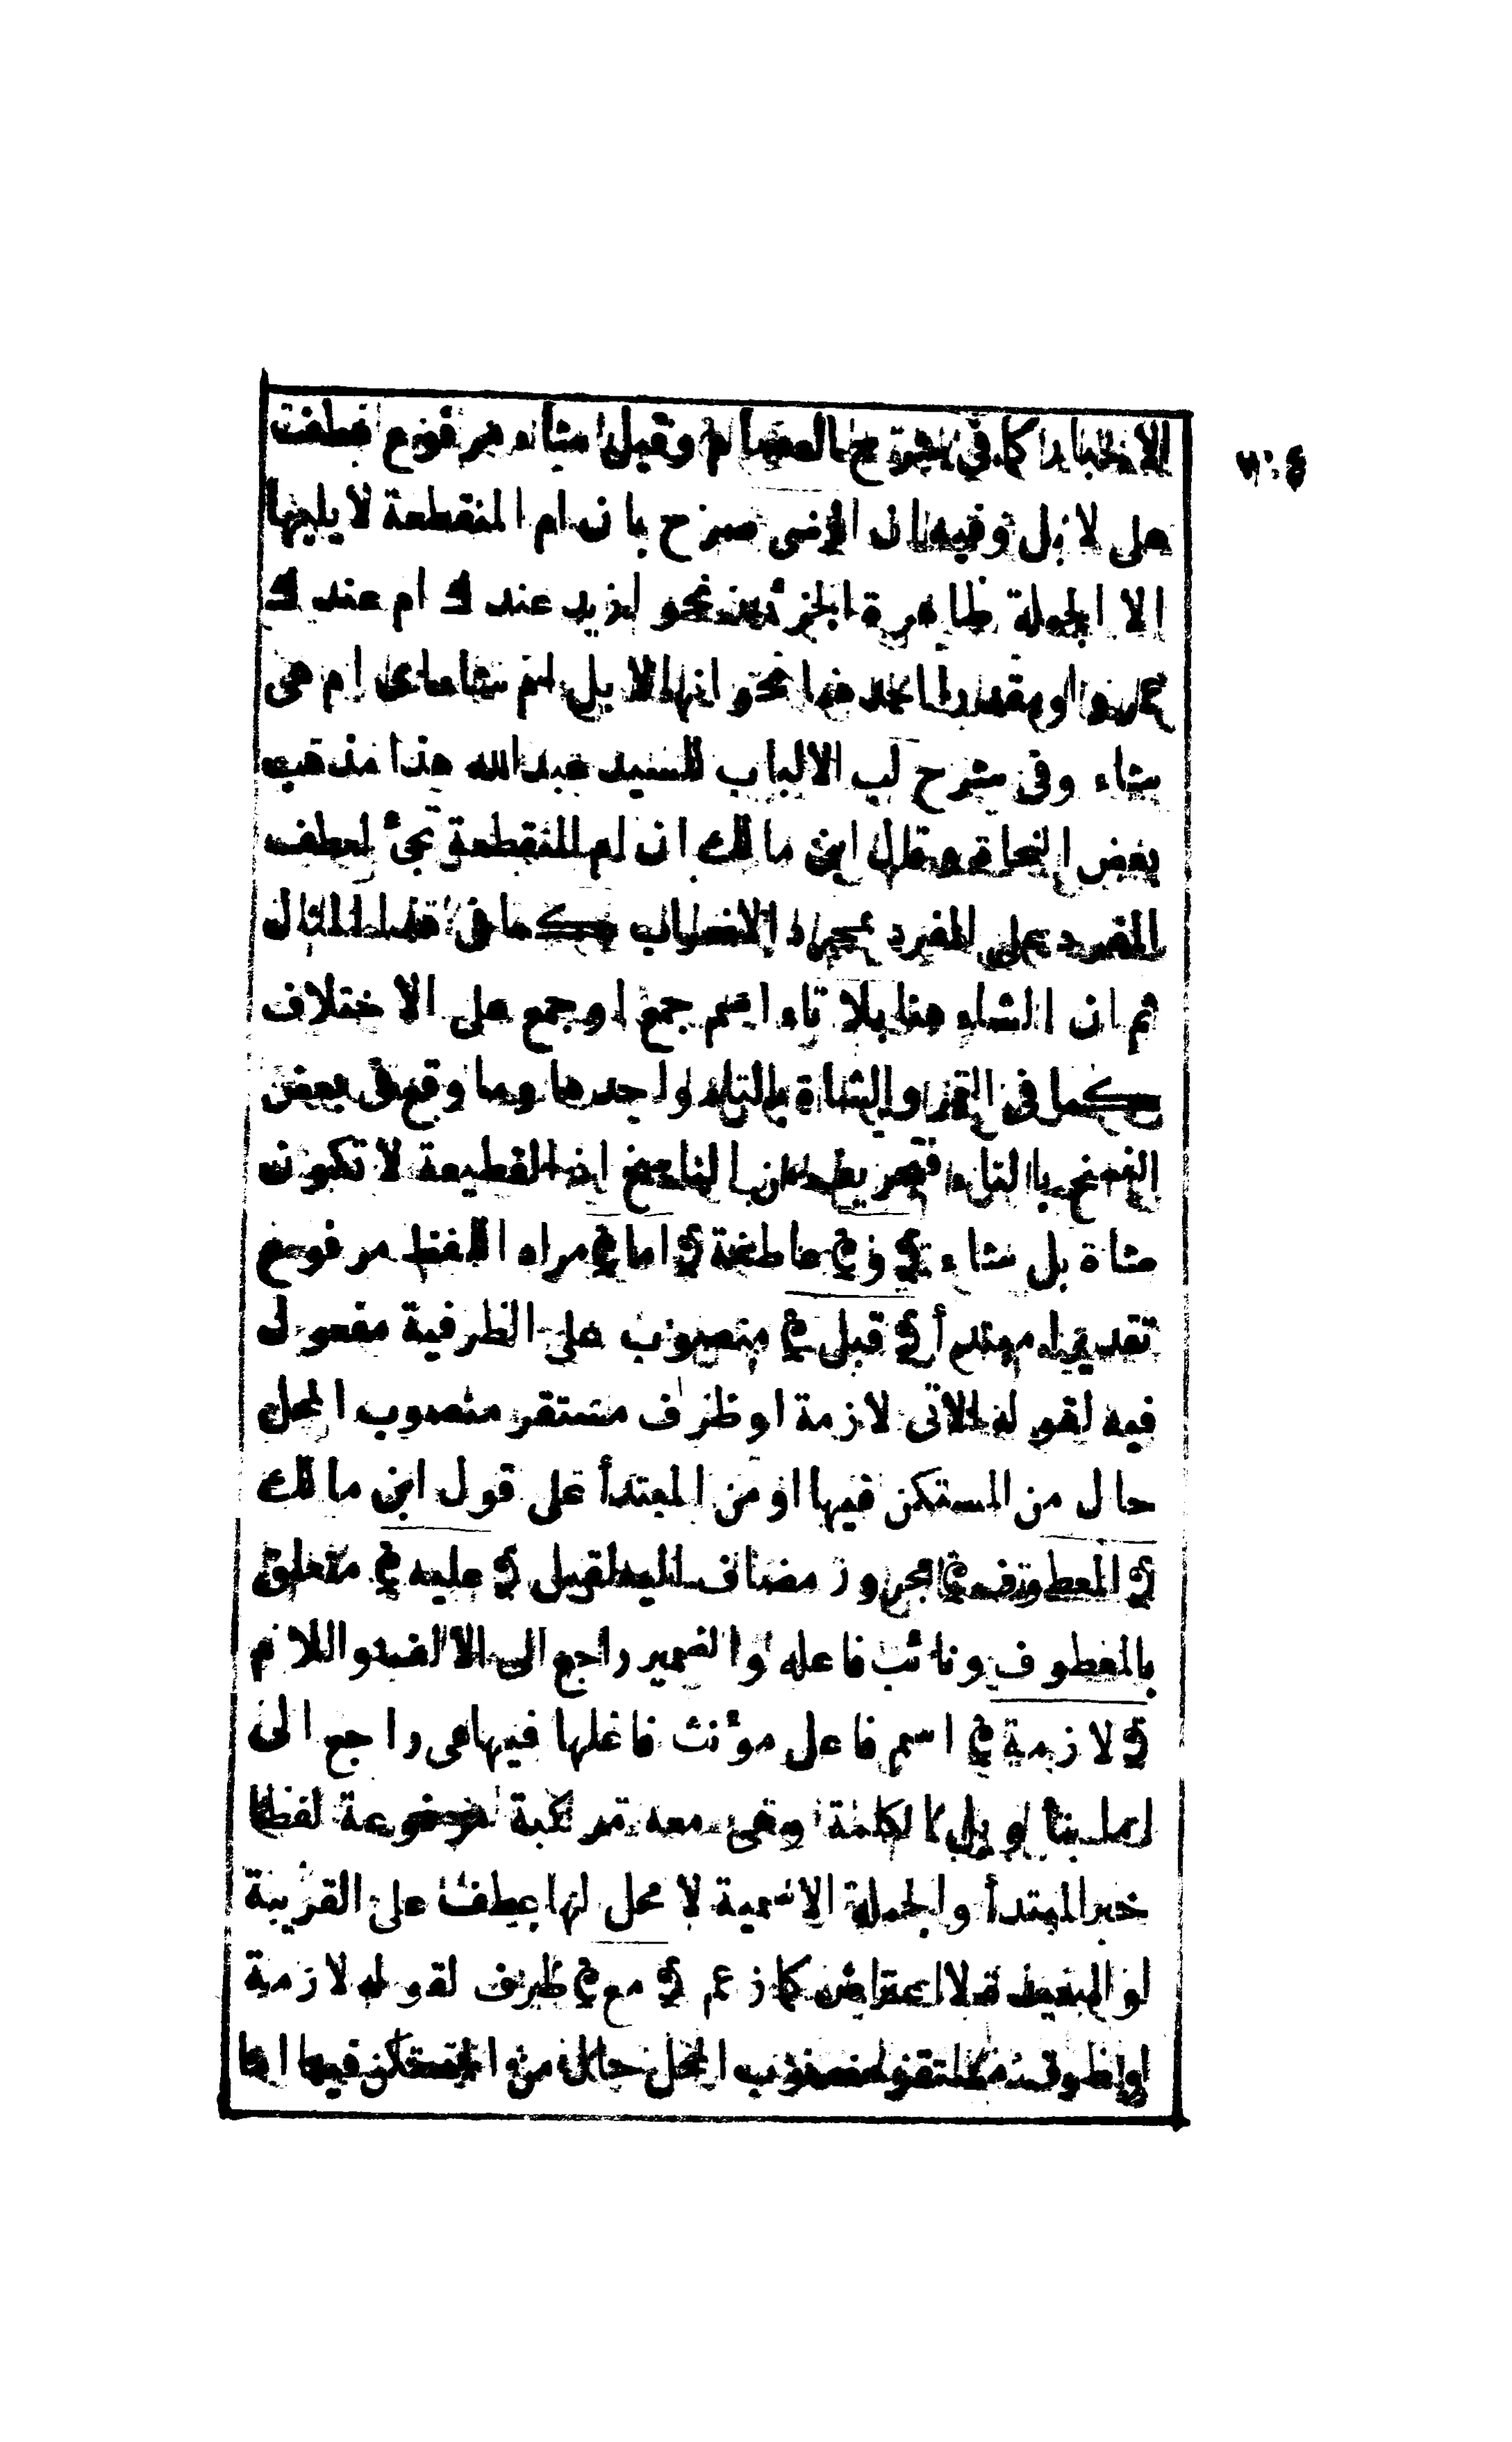 الاخبار كما فى شرح العصام وقيل شاء مرفوع عطف
على لا بل وفيه ان الرضى صرح بان ام المنقطعة لا يليها
الا الجملة ظاهرة الجزئين نحو ازيد عندك ام عندك
عمرو او مقدرا احدهما نحو انها لابل ام شاء اى ام هى
شاء وفى شرح لب الالباب للسيد عبدالله هذا مذهب
بعض النحاة وقال ابن مالك ان ام المنقطعة تجئ لعطف
المفرد على المفرد بمجرد الاضراب كما فى هذا المثال
ثم ان الشاء هنا بلا تاء اسم جمع او جمع على الاختلاف
كما فى التمر والشاة بالتاء واحدها وما وقع فى بعض
النسخ بالتاء فتحريف من الناسخ اذ القطيعة لا تكون
شاة بل شاء ﴿ و ﴾ عاطفة ﴿ اما ﴾ مراد اللفظ مرفوع
تقديرا مبتدأ ﴿ قبل ﴾ منصوب على الظرفية مفعول
فيه لقوله الاتى لازمة او ظرف مستقر منصوب المحل
حال من المستكن فيها او من المبتدأ على قول ابن مالك
﴿ المعطوف ﴾ مجرور مضاف اليه لقبل ﴿ عليه ﴾ متعلق
بالمعطوف ونائب فاعله والضمير راجع الى الالف واللام
﴿ لازمة ﴾ اسم فاعل مؤنث فاعلها فيها هى راجع الى
اما بتأويل الكلمة وهى معه مركبة مرفوعة لفظا
خبر المبتدأ والجملة الاسمية لا محل لها عطف على القريبة
او البعيدة لا اعتراض كما زعم ﴿ مع ﴾ ظرف لقوله لازمة
او ظرف مستقر منصوب المحل حال من المستكن فيها اما